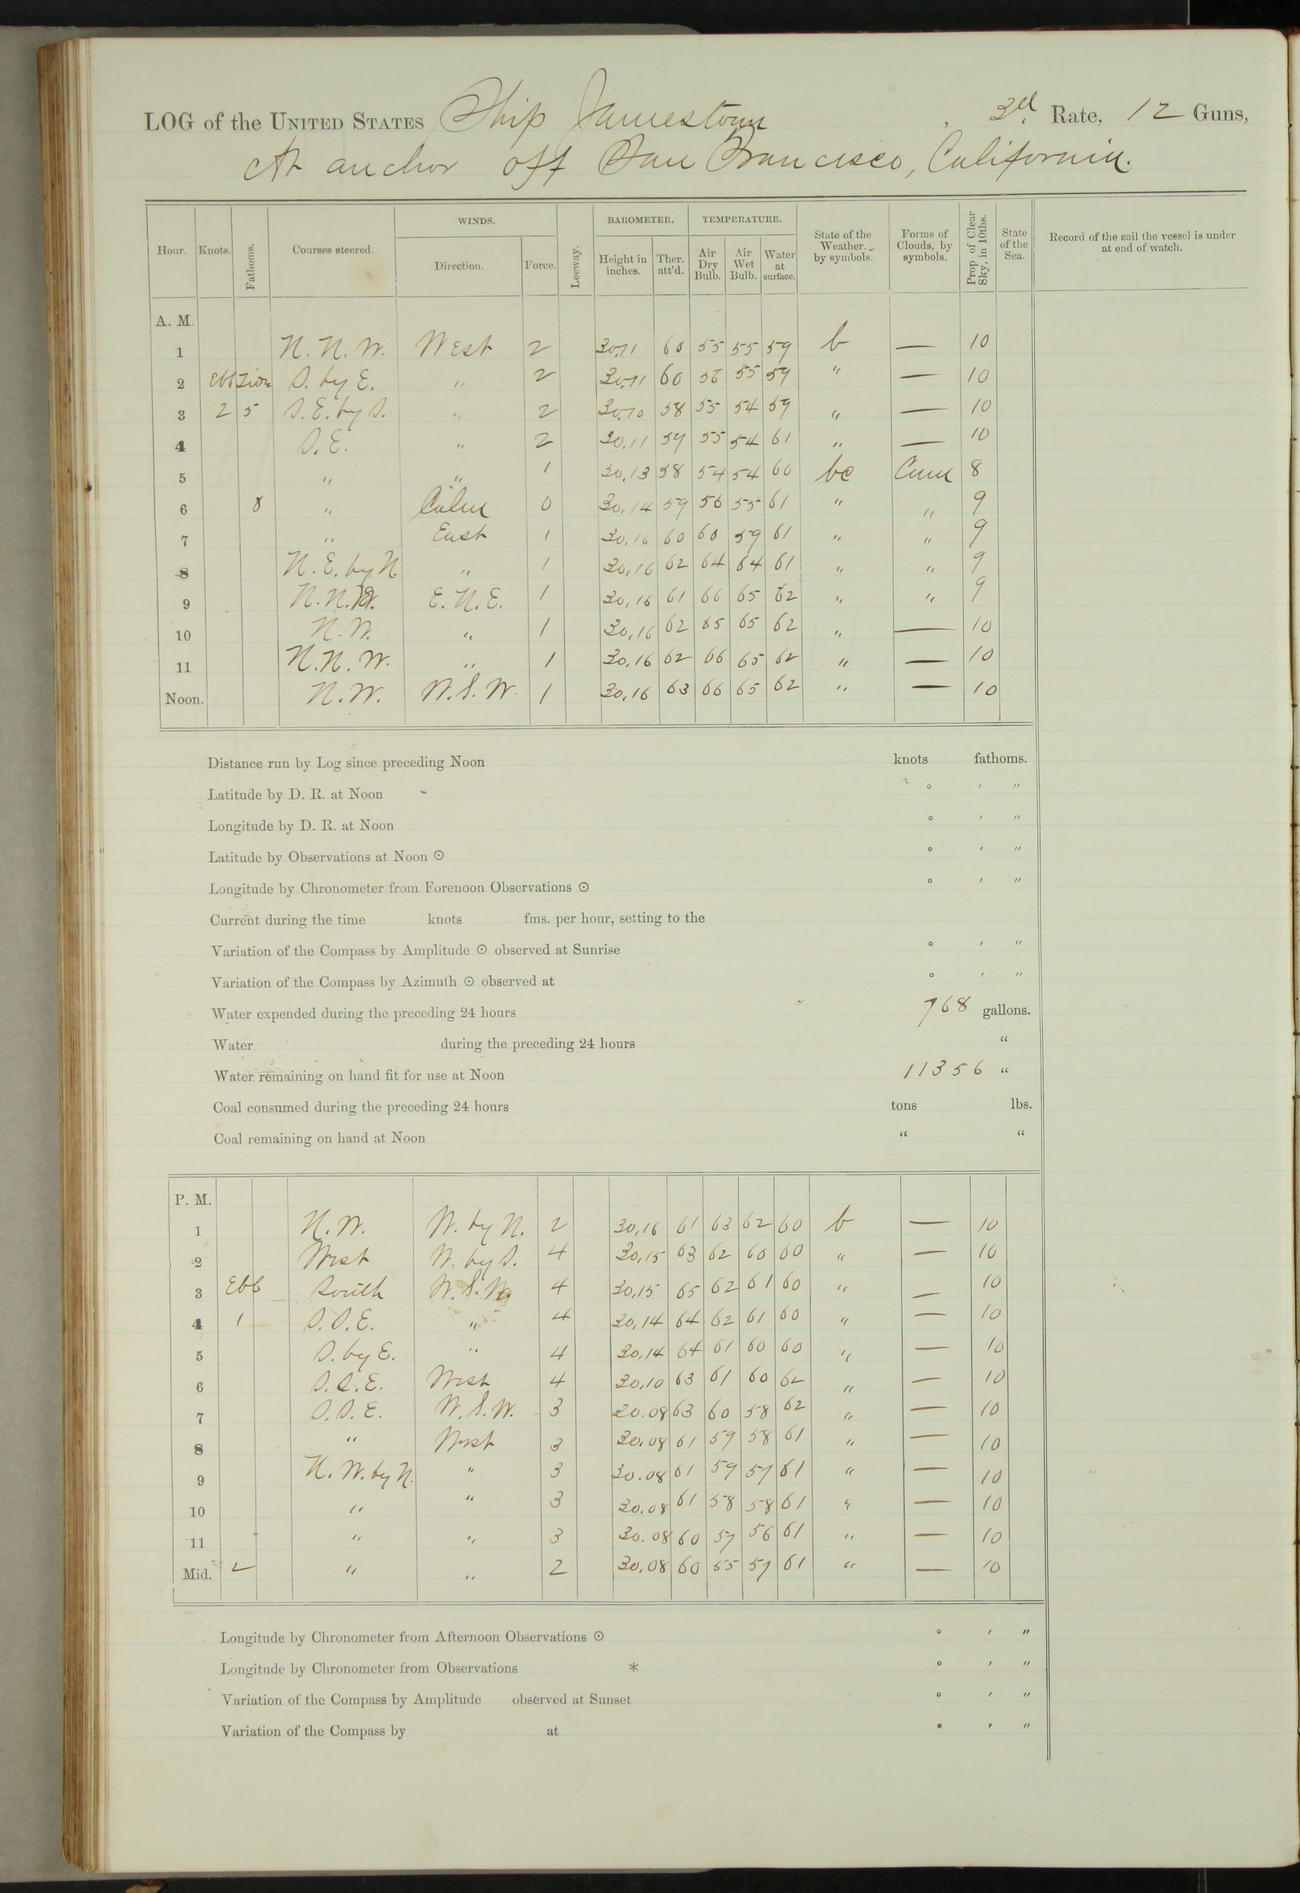 LOG of the UNITED STATES Ship Jamestown, 3rd. Rate, 12 Guns,
At anchor off San Francisco, California.
Hour. Knots. Fathoms. Courses steered. WINDS. Direction. Force. Leeway. BAROMETER. Height in inches. Ther. att'd. TEMPERATURE. Air Dry Bulb. Air Wet Bulb. Water at surface. State of the Weather, by symbols. Forms of Clouds, by symbols. Prop of Clear Sky, in 10ths. State of the Sea. Record of the sail the vessel is under at end of watch.
A. M.
1 N. N. W. West 2 30.11 60 55 55 59 b — 10
2 S. by E. " 2 30.11 60 56 55 59 " — 10
3 2 5 S. E. by S. " 2 30.10 58 55 54 59 " — 10
4 S. E. " 2 30.11 59 55 54 61 " — 10
5 " " 1 30,13 58 54 54 60 bc Cum 8
6 8 " Calm 0 30,14 59 56 55 61 " " 9
7 " East 1 30,16 60 60 59 61 " " 9
8 N. E. by N " 1 30,16 62 64 64 61 " " 9
9 N. N. W. E. N. E. 1 30,16 61 66 65 62 " " 9
10 N. W. " 1 30,16 62 65 65 62 " — 10
11 N. N. W. " 1 30,16 62 66 65 62 " — 10
Noon. N. W. W. S. W. 1 30,16 63 66 65 62 " — 10
Distance run by Log since preceding Noon knots fathoms.
Latitude by D. R. at Noon ° ′ ″
Longitude by D. R. at Noon ° ′ ″
Latitude by Observations at Noon ☉ ° ′ ″
Longitude by Chronometer from Forenoon Observations ☉ ° ′ ″
Current during the time knots fms. per hour, setting to the
Variation of the Compass by Amplitude ☉ observed at Sunrise ° ′ ″
Variation of the Compass by Azimuth ☉ observed at ° ′ ″
Water expended during the preceding 24 hours 768 gallons.
Water during the preceding 24 hours "
Water remaining on hand fit for use at Noon 11356 "
Coal consumed during the preceding 24 hours tons lbs.
Coal remaining on hand at Noon " "
P. M.
1 N. W. W. by N. 2 30,16 61 63 62 60 b — 10
2 West W. by S. 4 30,15 63 62 60 60 " — 10
3 Ebb South W. S. W. 4 30,15 65 62 61 60 " — 10
4 1 S. S. E. " 4 30,14 64 62 61 60 " — 10
5 S. by E. " 4 30,14 64 61 60 60 " — 10
6 S. S. E. West 4 30,10 63 61 60 62 " — 10
7 S. S. E. W. S. W. 3 30.08 63 60 58 62 " — 10
8 " West 3 30.08 61 59 58 61 " — 10
9 N. W. by N. " 3 30.08 61 59 57 61 " — 10
10 " " 3 30.08 61 58 58 61 " — 10
11 " " 3 30.08 60 57 56 61 " — 10
Mid. 2 " " 2 30,08 60 55 57 61 " — 10
Longitude by Chronometer from Afternoon Observations ☉ ° ′ ″
Longitude by Chronometer from Observations * ° ′ ″
Variation of the Compass by Amplitude observed at Sunset ° ′ ″
Variation of the Compass by at ° ′ ″